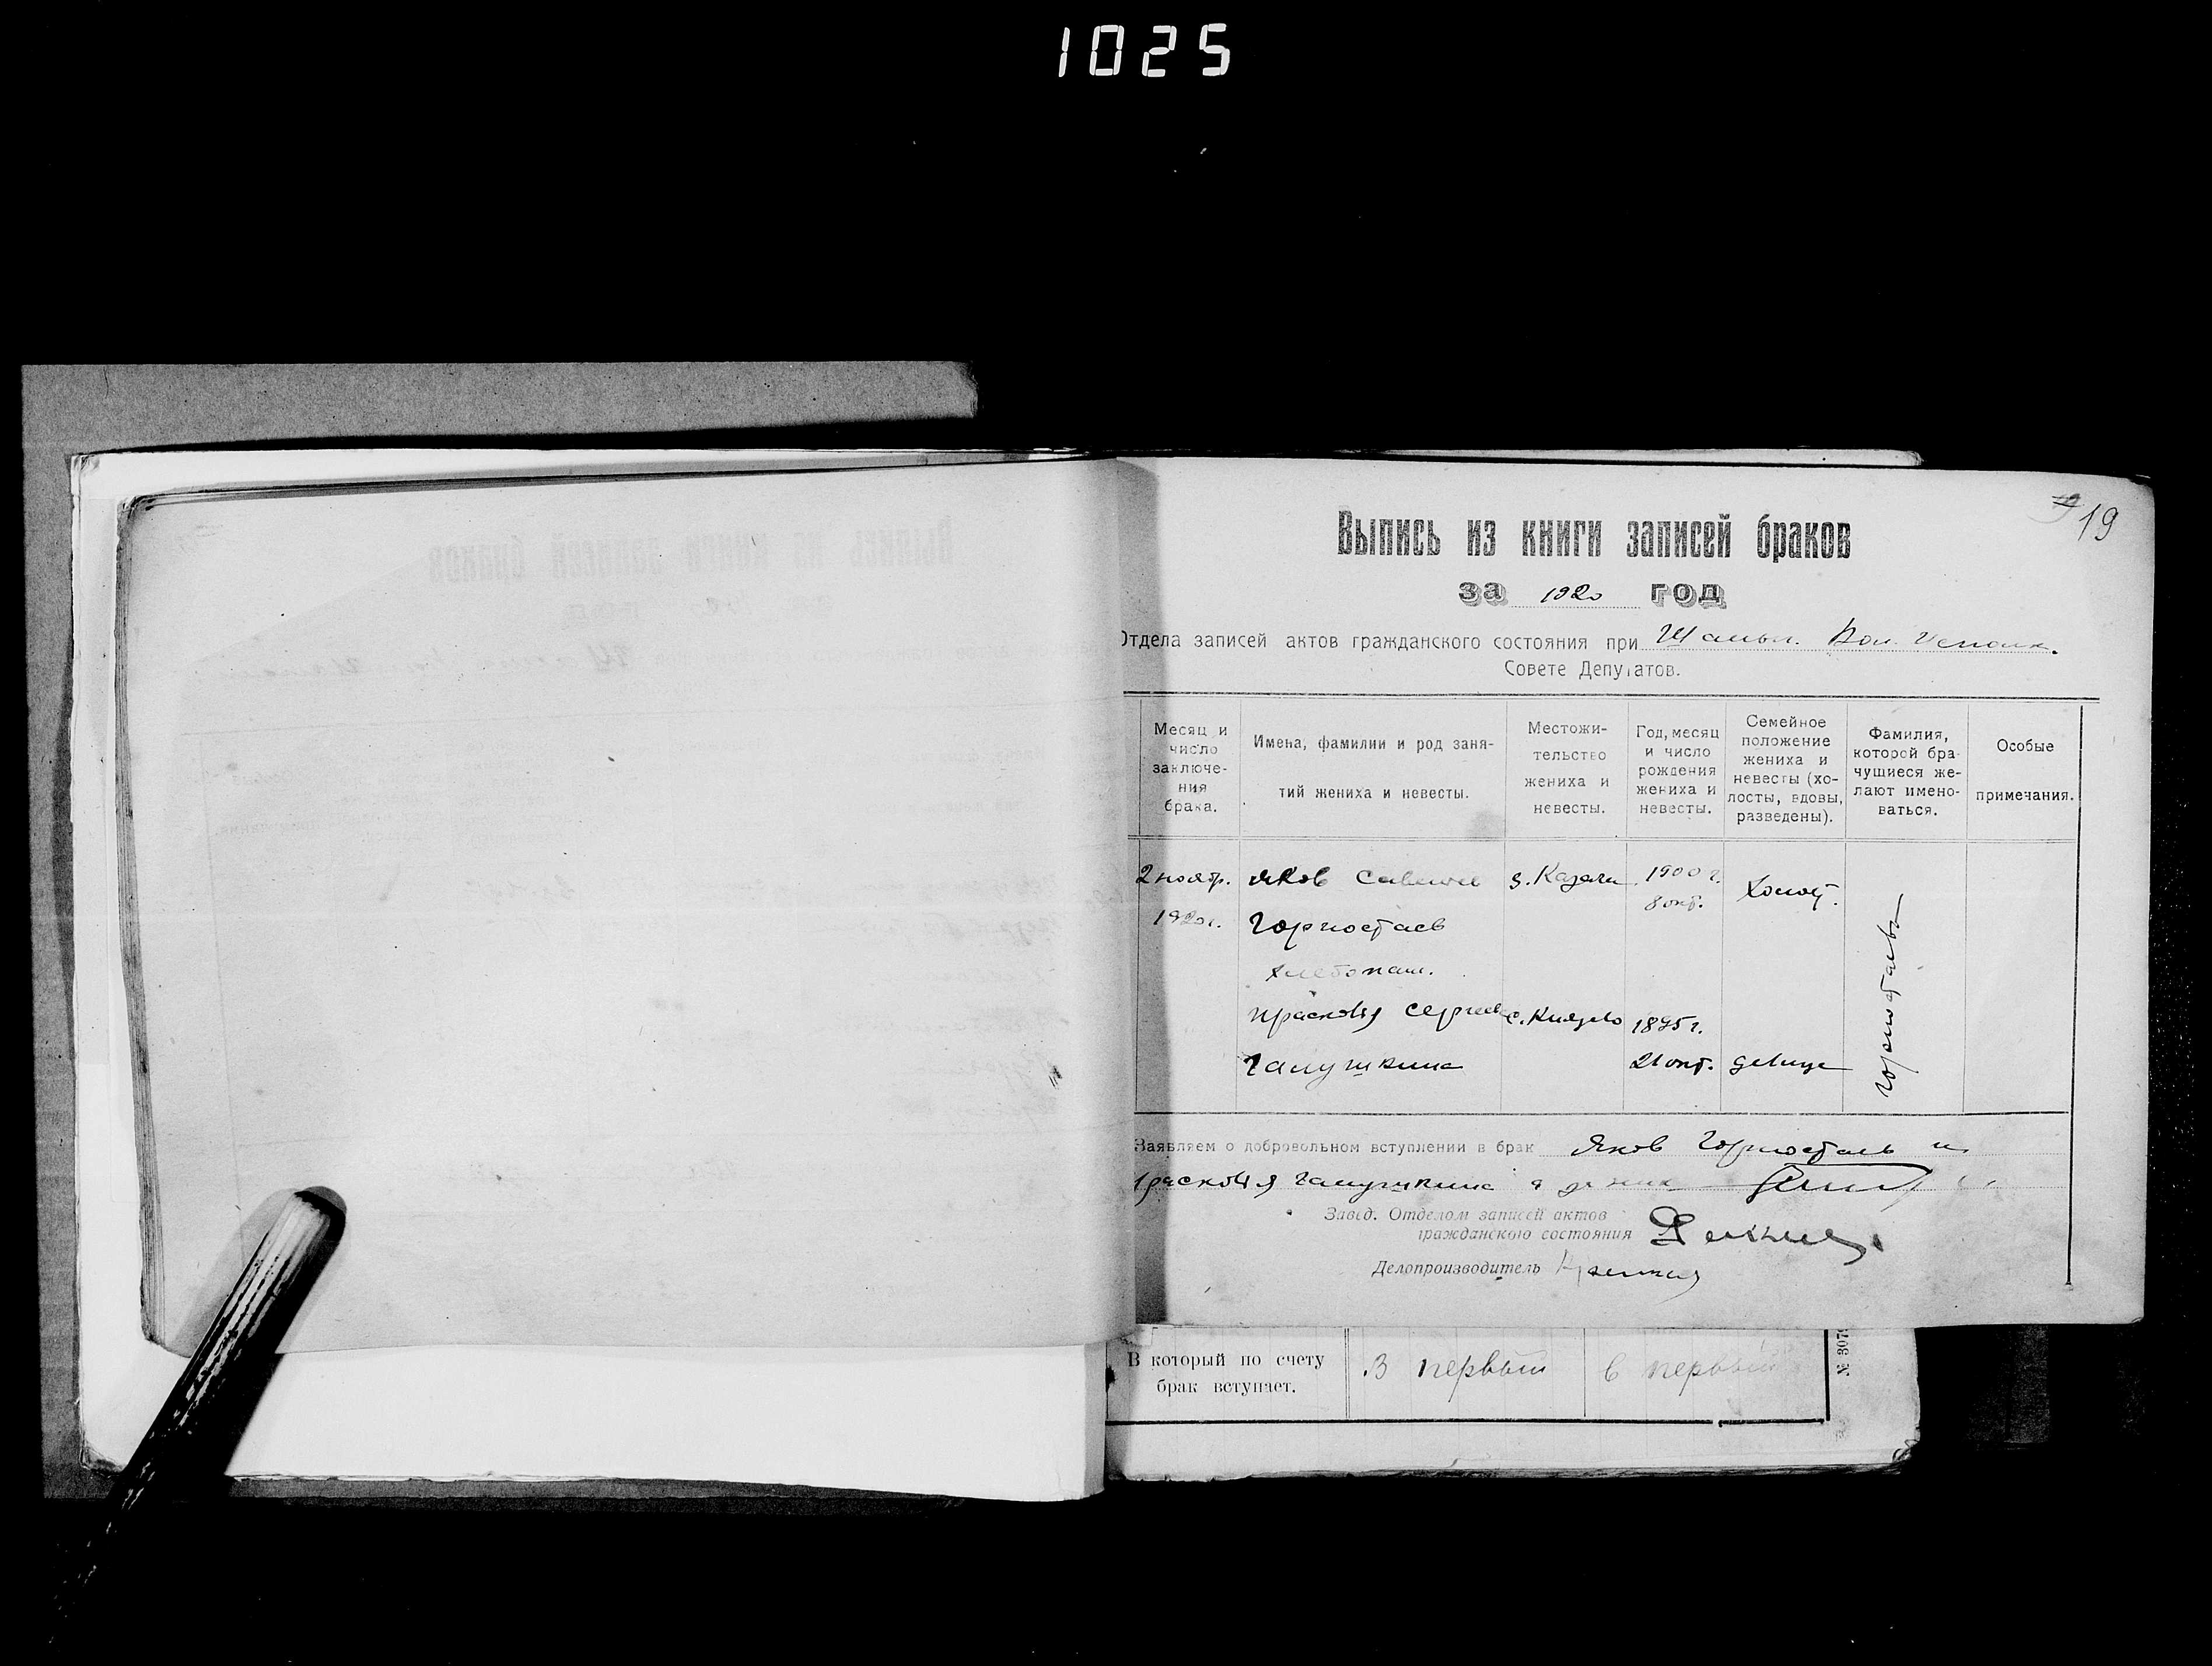 1025
19
Выпись из книги записей браков
за 1920 год
Отдела записей актов гражданского состояния при Шамов. Вол. Исполк.
Совете Депутатов.
Месяц и число заключения брака.
Имена, фамилии и род занятий жениха и невесты.
Местожительство жениха и невесты.
Год, месяц и число рождения жениха и невесты.
Семейное положение жениха и невесты (холосты, вдовы, разведены).
Фамилия, которой брачущиеся желают именоваться.
Особые примечания.
2 ноябр. Яков Савельев Казачи 1900 г. Холост.
8 окт.
1920 г. Горностаев
хлебопаш.
Прасковья Сергеев с. Князево 1895 г.
Галушкина 21 окт. девица
Горностаевы
Заявляем о добровольном вступлении в брак Яков Горностаев и
Прасковья Галушкина
Завед. Отделом записей актов
гражданского состояния
Делопроизводитель
В который по счету
брак вступает.
В первый в первый
№ 3079